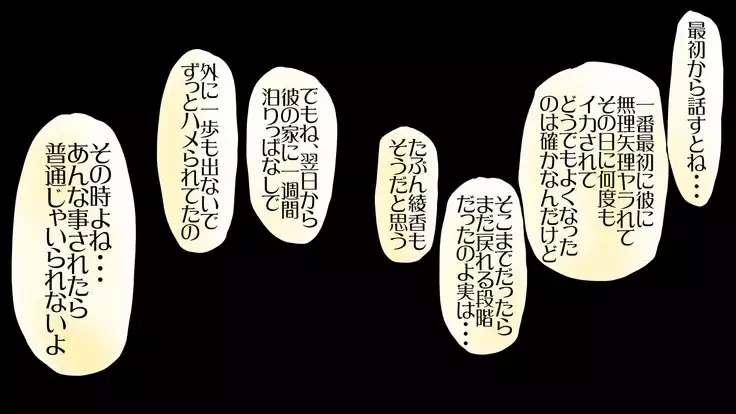 最初から話すとね・・・
一番最初に彼に
無理矢理ヤラれて
その日に何度も
イカされて
どうでもよくなった
のは確かなんだけど
そこまでだったら
まだ戻れる段階
だったのよ実は・・・
たぶん綾香も
そうだと思う
でもね、翌日から
彼の家に一週間
泊りっぱなしで
外に一歩も出ないで
ずっとハメられてたの
その時よね・・・
あんな事されたら
普通じゃいられないよ